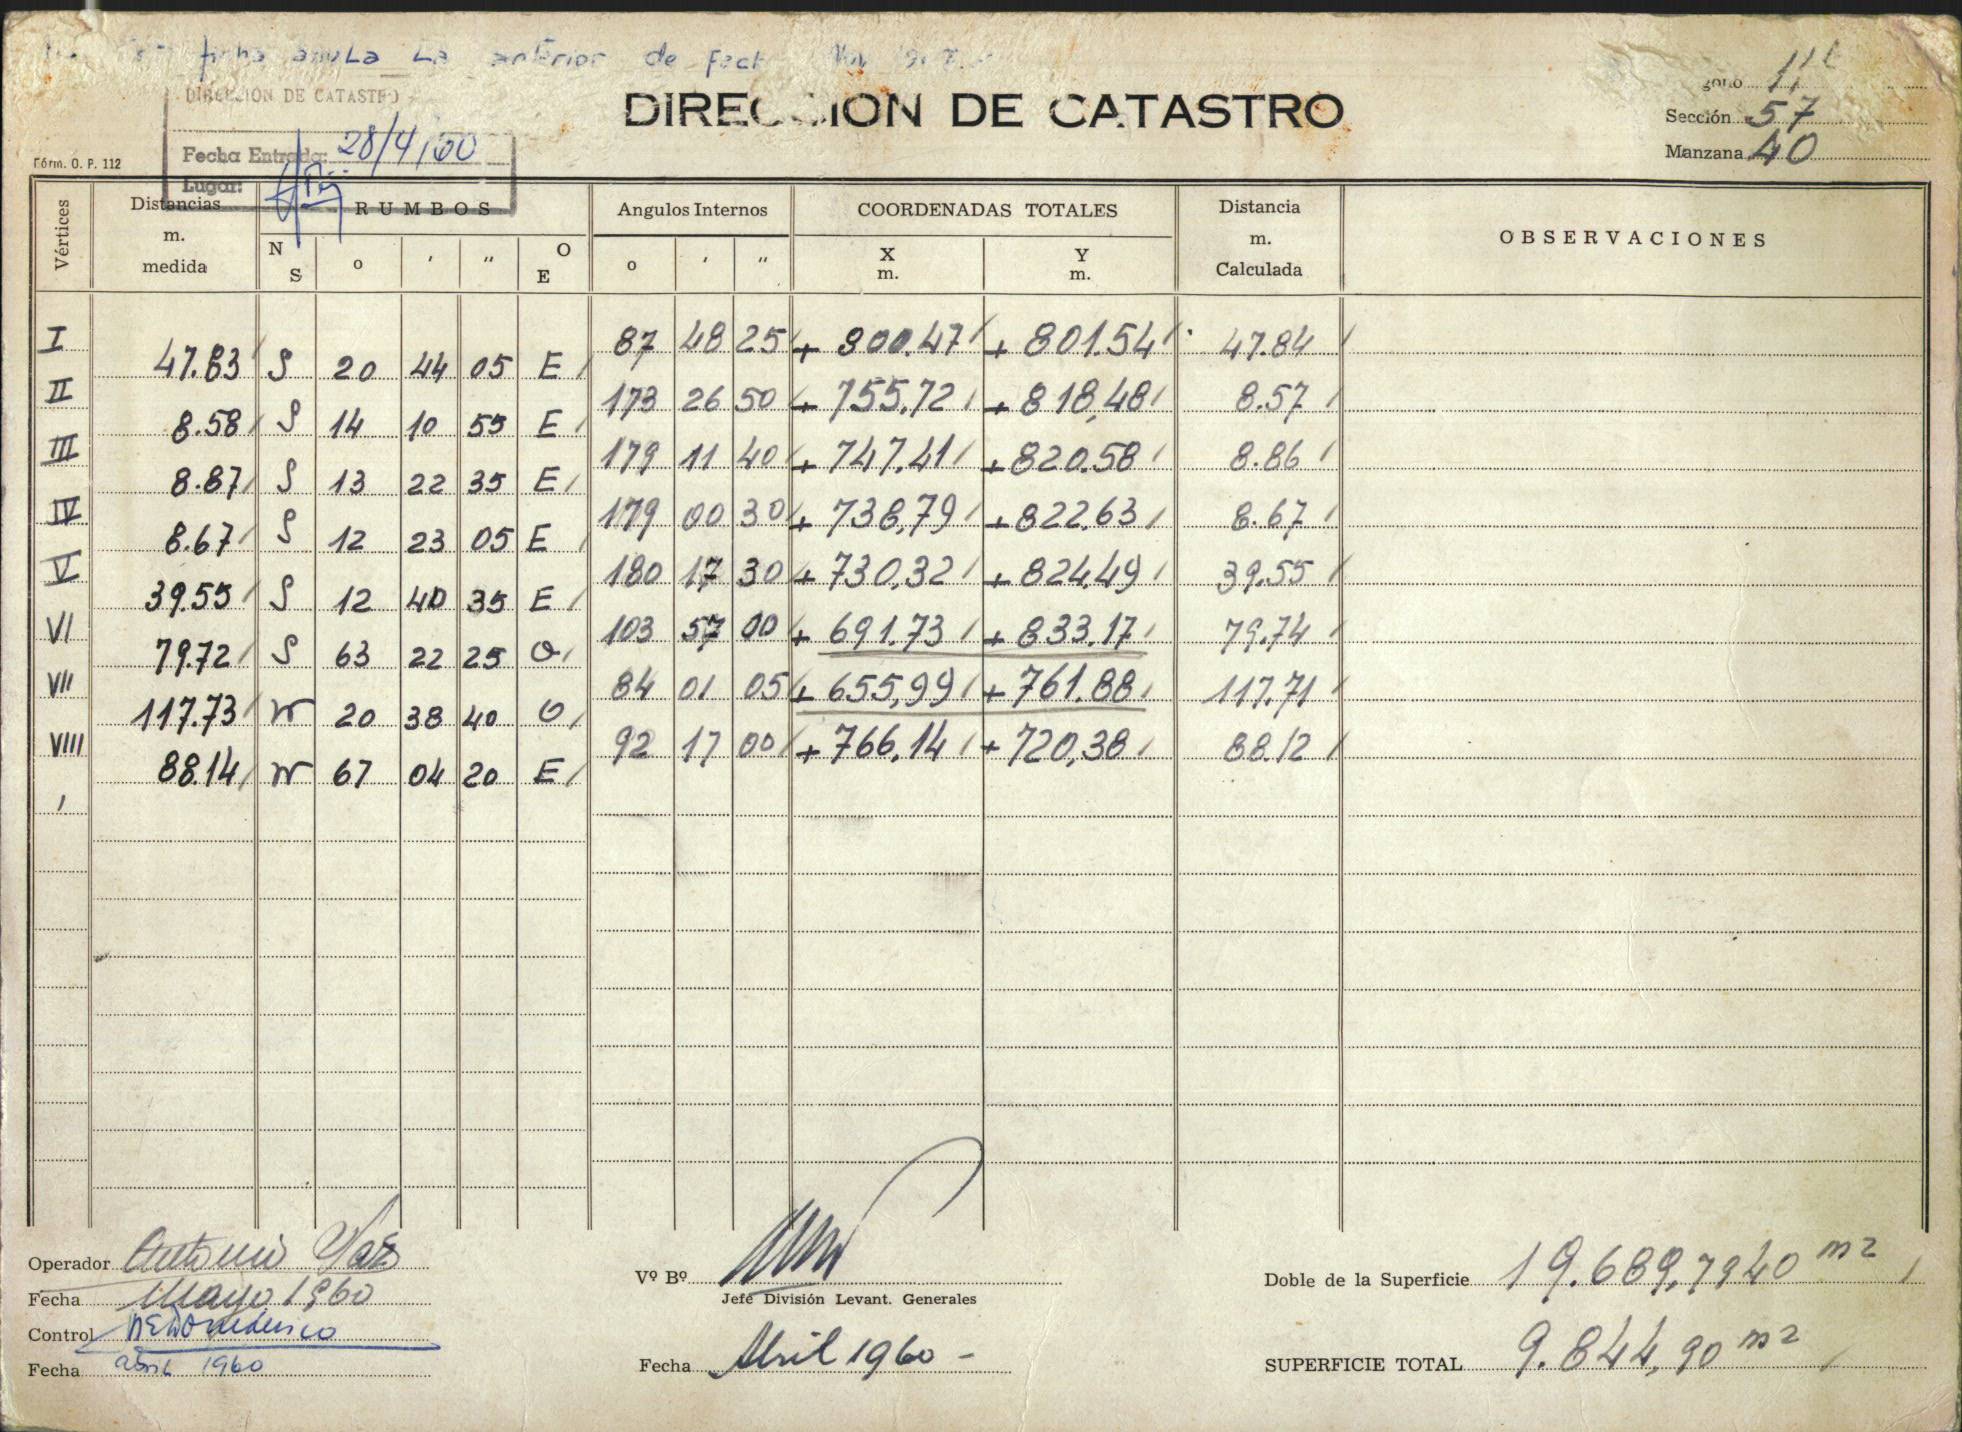 ficha anula La anterior de fecha
DIRECCION DE CATASTRO
DIRECCION DE CATASTRO
Fecha Entrada: 28/4/60
Lugar:
Fórm. O. P. 112
gono 11
Sección 57
Manzana 40
Vértices Distancias m. medida RUMBOS Angulos Internos COORDENADAS TOTALES Distancia m. Calculada OBSERVACIONES
N S o ' " O E o ' " X m. Y m.
I 87 48 25 + 800.47 + 801.54 47.84
47.83 S 20 44 05 E
II 173 26 50 + 755,72 + 818,48 8.57
8.58 S 14 10 55 E
III 179 11 40 + 747.41 + 820.58 8.86
8.87 S 13 22 35 E
IV 179 00 30 + 738,79 + 822.63 8.67
8.67 S 12 23 05 E
V 180 17 30 + 730,32 + 824.49 39.55
39.55 S 12 40 35 E
VI 103 57 00 + 691.73 + 833.17 79.74
79.72 S 63 22 25 O
VII 84 01 05 + 655,99 + 761.88 117.71
117.73 N 20 38 40 O
VIII 92 17 00 + 766,14 + 720,38 88.12
88.14 N 67 04 20 E
Operador Antonio
Fecha Mayo 1960
Control
Fecha abril 1960
Vº Bº
Jefe División Levant. Generales
Fecha Abril 1960 -
Doble de la Superficie 19.689,7940 m2
SUPERFICIE TOTAL 9.844,90 m2